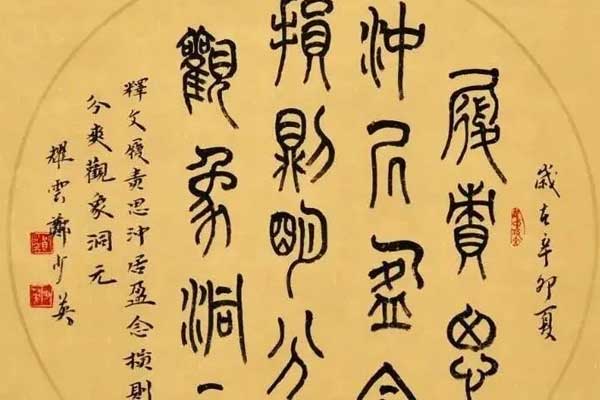 歲在辛卯夏
履貴思
沖居盈念
損則明分
觀象洞
釋文履貴思沖居盈念損則
分爽觀象洞元
耀雲鄭少英